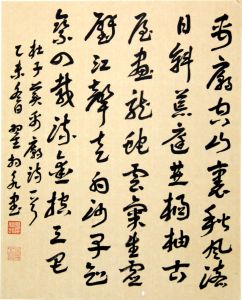 禹廟空山裏秋風落
日斜荒庭垂橘柚古
屋畫龍蛇雲氣生虛
壁江聲走白沙早知
乘四載疏鑿控三巴
杜子美禹廟詩一首
乙未